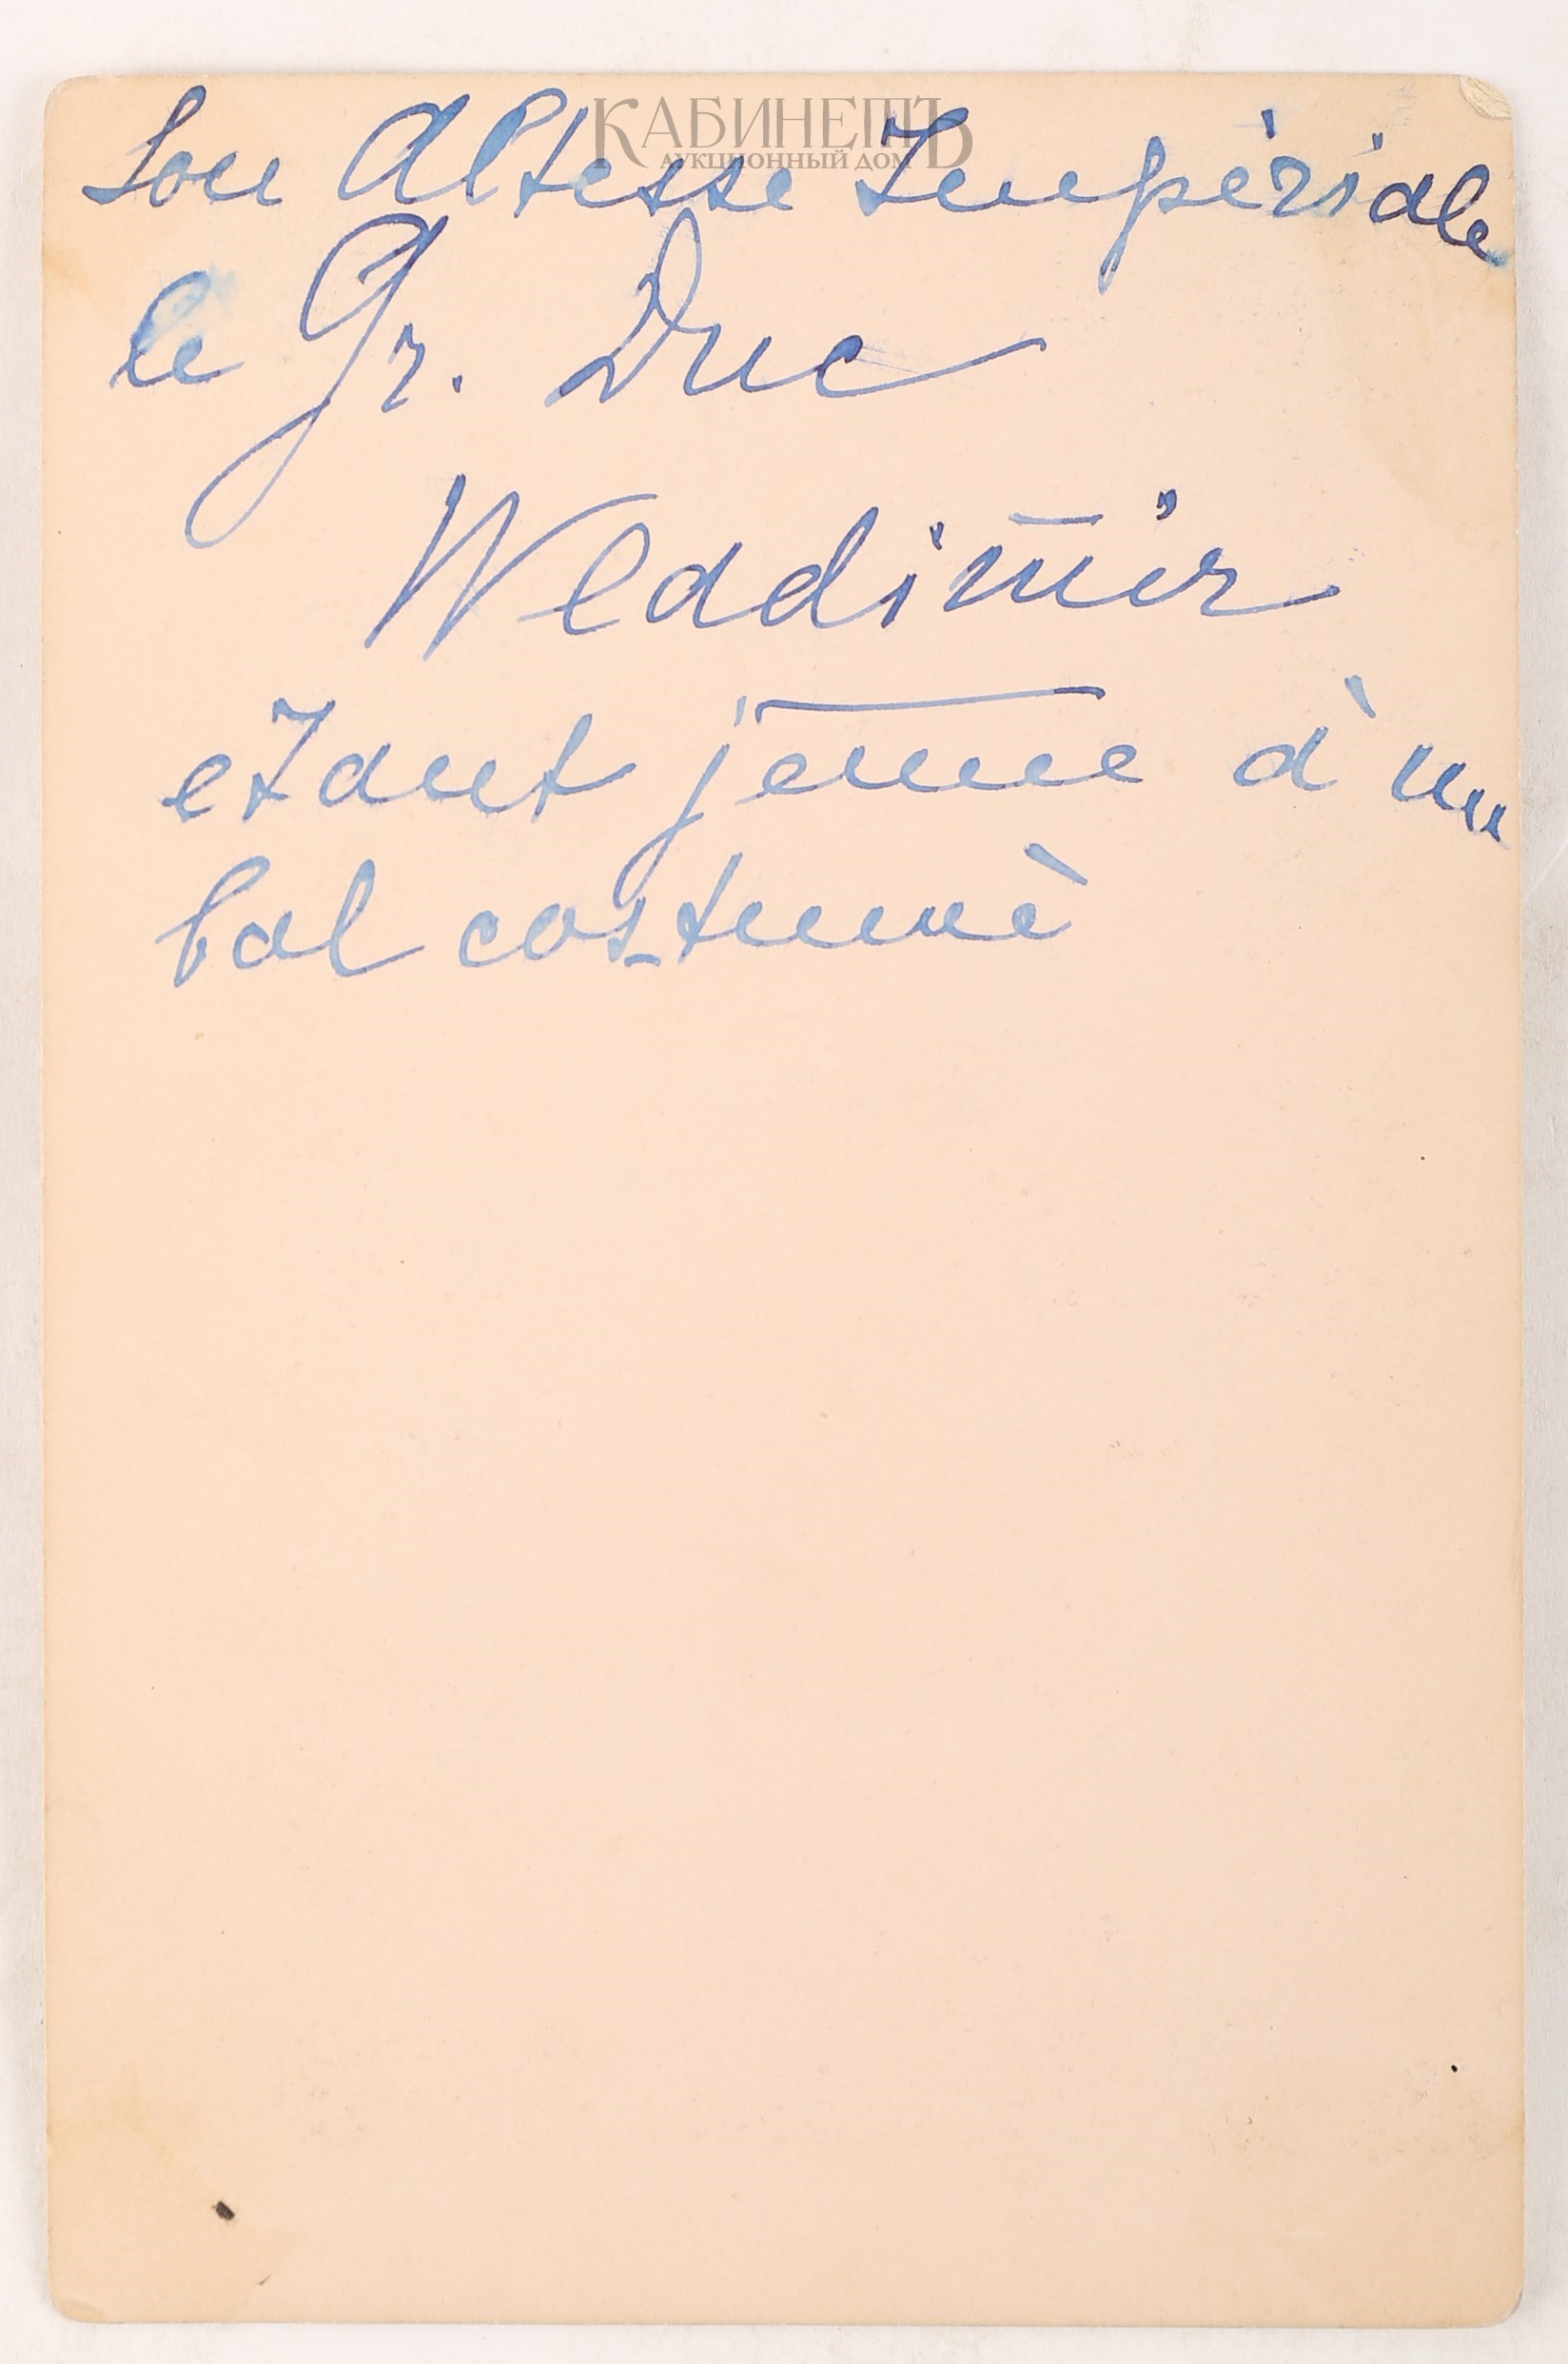 КАБИНЕТЪ
АУКЦИОННЫЙ ДОМ
Son Altesse Impèriale
le Gr. Duc
Wladimir
etant jeune à un
bal costumè